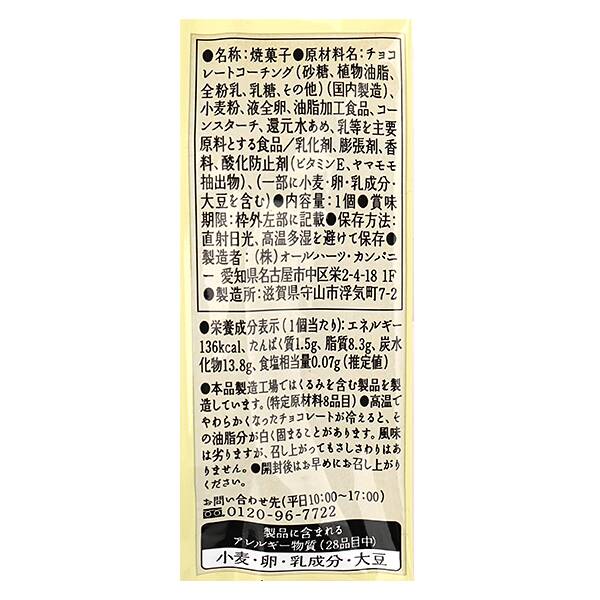 ●名称:焼菓子●原材料名:チョコ
レートコーチング(砂糖、植物油脂、
全粉乳、乳糖、その他)(国内製造)、
小麦粉、液全卵、油脂加工食品、コー
ンスターチ、還元水あめ、乳等を主要
原料とする食品/乳化剤、膨張剤、香
料、酸化防止剤(ビタミンE、ヤマモモ
抽出物)、(一部に小麦・卵・乳成分・
大豆を含む)●内容量:1個●賞味
期限:枠外左部に記載●保存方法:
直射日光、高温多湿を避けて保存●
製造者:(株)オールハーツ・カンパニ
ー 愛知県名古屋市中区栄2-4-18 1F
●製造所:滋賀県守山市浮気町7-2
●栄養成分表示(1個当たり):エネルギー
136kcal、たんぱく質1.5g、脂質8.3g、炭水
化物13.8g、食塩相当量0.07g(推定値)
●本品製造工場ではくるみを含む製品を製
造しています。(特定原材料8品目)●高温で
やわらかくなったチョコレートが冷えると、そ
の油脂分が白く固まることがあります。風味
は劣りますが、召し上がってもさしさわりはあ
りません。●開封後はお早めにお召し上がり
ください。
お問い合わせ先(平日10:00〜17:00)
0120-96-7722
製品に含まれる
アレルギー物質(28品目中)
小麦・卵・乳成分・大豆